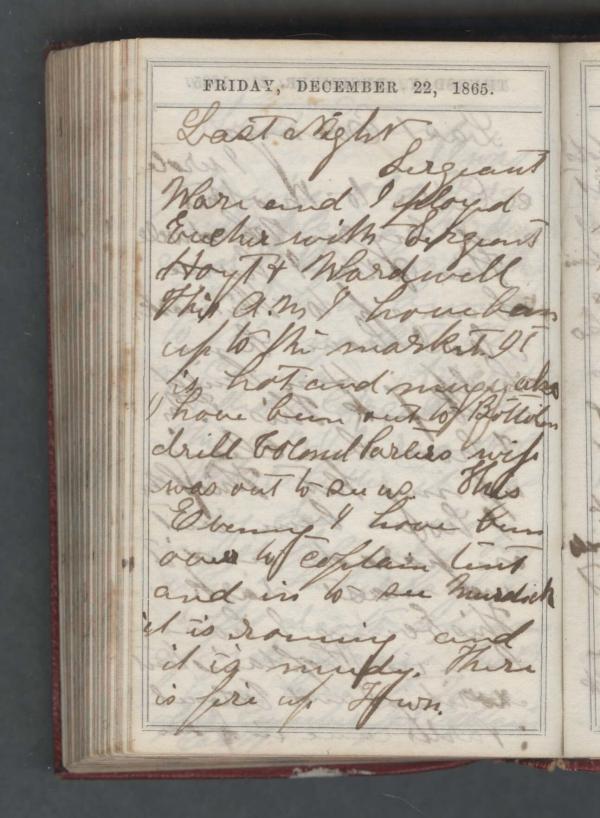 FRIDAY, DECEMBER 22, 1865.
Last Night
Sergeant
Ware and I ployed
Eucher with Sergeant
Hoyt & Wardwell
This A.M I have been
up to the market It
is hot and mugy also
I have been out to Battolin
drill Colonel Parlies wife
was out to see us. This
Evening I have been
over to captain tent
and in to see Murdick
it is raining and
it is muddy. There
is fire up Town.